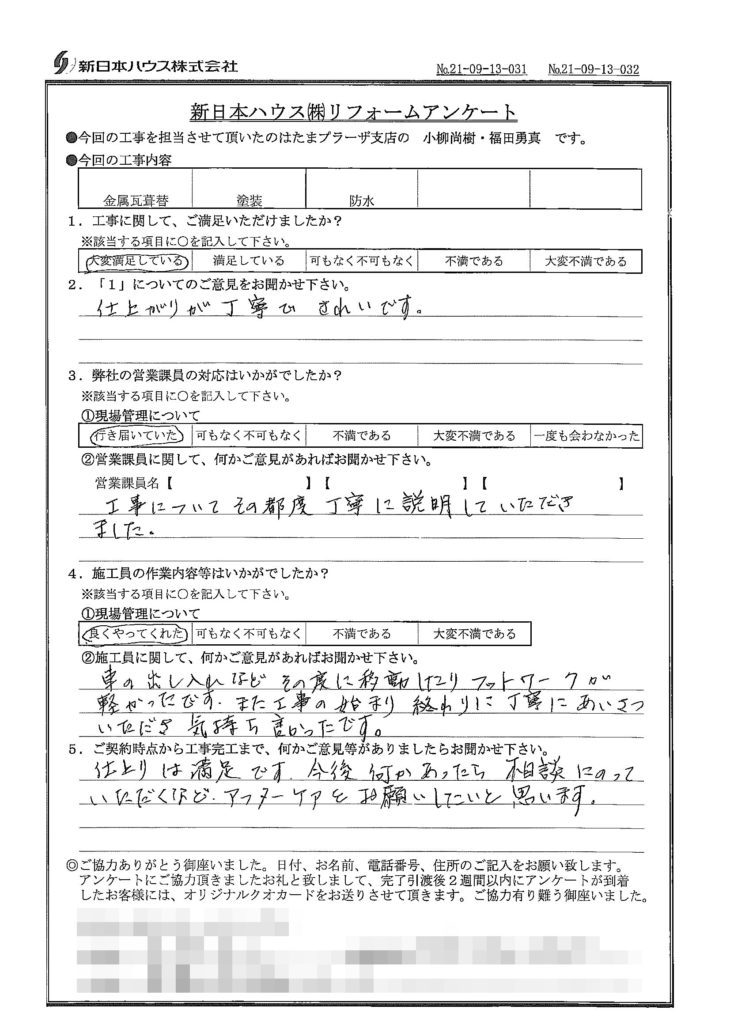 新日本ハウス株式会社
№21-09-13-031 №21-09-13-032
新日本ハウス㈱リフォームアンケート
●今回の工事を担当させて頂いたのはたまプラーザ支店の 小柳尚樹・福田勇真 です。
●今回の工事内容
金属瓦葺替 塗装 防水
1．工事に関して、ご満足いただけましたか？
※該当する項目に○を記入して下さい。
大変満足している 満足している 可もなく不可もなく 不満である 大変不満である
2．「1」についてのご意見をお聞かせ下さい。
仕上がりが丁寧で きれいです。
3．弊社の営業課員の対応はいかがでしたか？
※該当する項目に○を記入して下さい。
①現場管理について
行き届いていた 可もなく不可もなく 不満である 大変不満である 一度も会わなかった
②営業課員に関して、何かご意見があればお聞かせ下さい。
営業課員名【 】【 】【 】
工事について その都度 丁寧に説明していただき
ました。
4．施工員の作業内容等はいかがでしたか？
※該当する項目に○を記入して下さい。
①現場管理について
良くやってくれた 可もなく不可もなく 不満である 大変不満である
②施工員に関して、何かご意見があればお聞かせ下さい。
車の出し入れなど その度に移動したりフットワークが
軽かったです．また工事の始まり 終わりに丁寧にあいさつ
いただき 気持ち良かったです。
5．ご契約時点から工事完工まで、何かご意見等がありましたらお聞かせ下さい。
仕上りは満足です．今後何かあったら 相談にのって
いただくなど．アフターケアをお願いしたいと思います．
◎ご協力ありがとう御座いました。日付、お名前、電話番号、住所のご記入をお願い致します。
アンケートにご協力頂きましたお礼と致しまして、完了引渡後2週間以内にアンケートが到着
したお客様には、オリジナルクオカードをお送りさせて頂きます。ご協力有り難う御座いました。